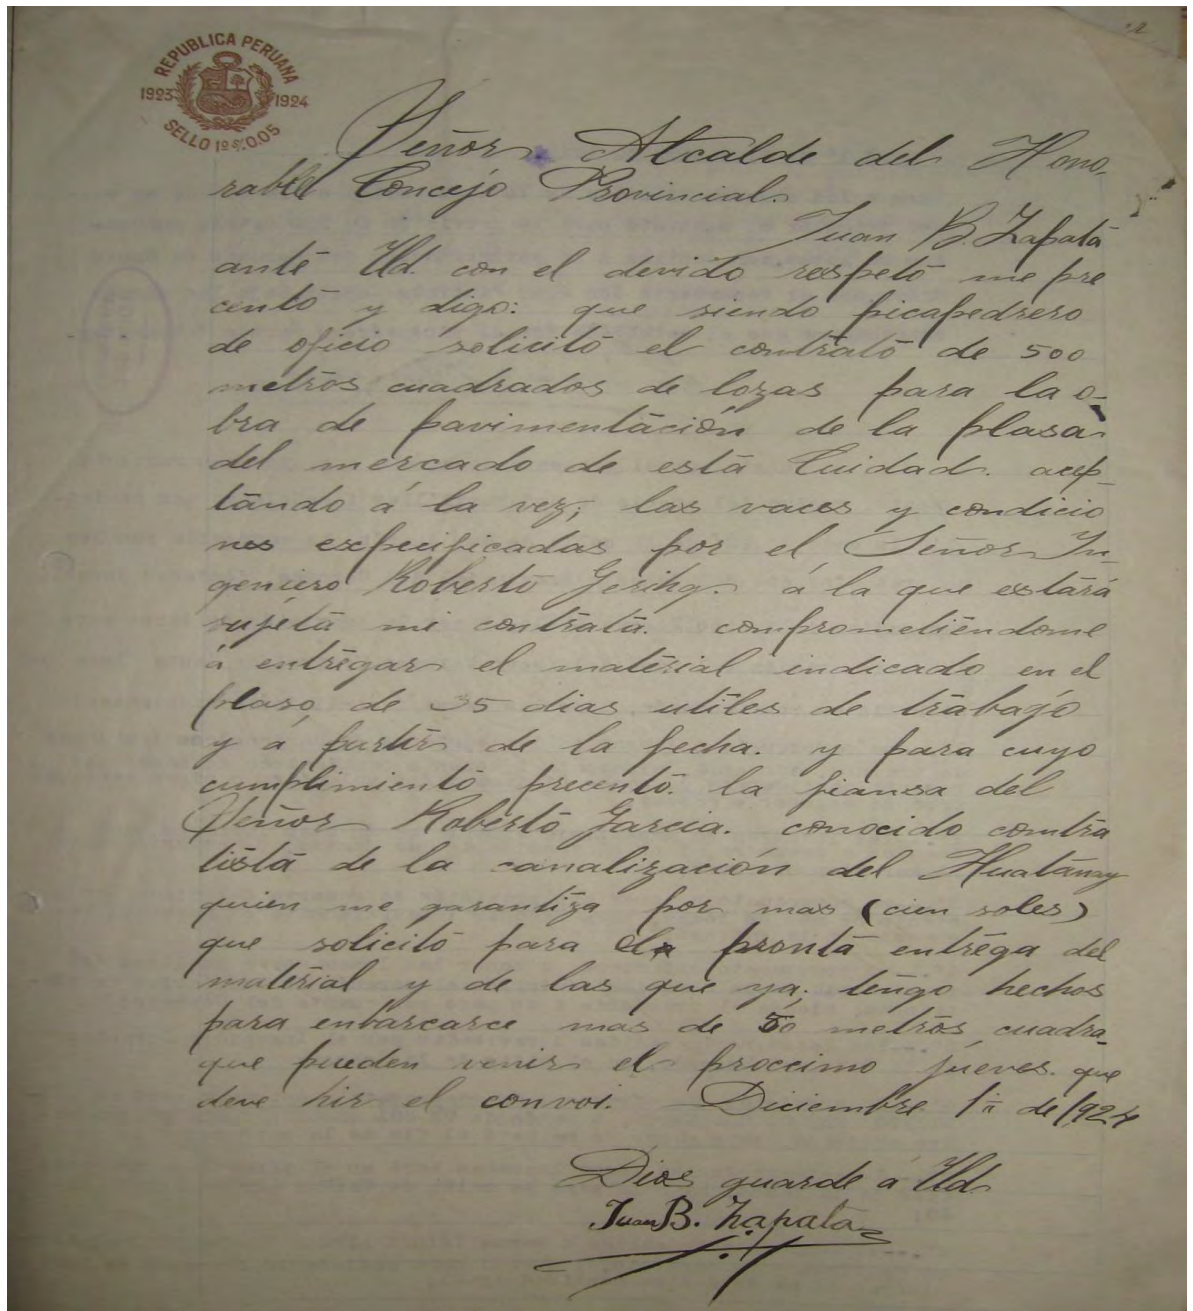 REPUBLICA PERUANA
1923 1924
SELLO 1º S/. 0.05
Señor Alcalde del Hono-
rable Concejo Provincial.
Juan B. Zapata
ante Ud. con el devido respeto me pre
cento y digo: que siendo picapedrero
de oficio solicito el contrato de 500
metros cuadrados de lozas para la o-
bra de pavimentación de la plasa
del mercado de esta Cuidad. acep-
tando á la vez; las vaces y condicio
nes especificadas por el Señor In-
geniero Roberto á la que estará
sujeta mi contrata. comprometiéndome
á entregar el material indicado en el
plaso de 35 dias utiles de trabajo
y á partir de la fecha. y para cuyo
cumplimiento precento. la fiansa del
Señor Roberto Garcia. conocido contra
tista de la canalización del Huatanay
quien me garantiza por mas (cien soles)
que solicito para la pronta entrega del
material y de las que ya; tengo hechos
para enbarcarce mas de 50 metros cuadra-
que pueden venir el proccimo jueves. que
deve hir el convoi. Diciembre 1º de 1924
Dios guarde á Ud.
Juan B. Zapata